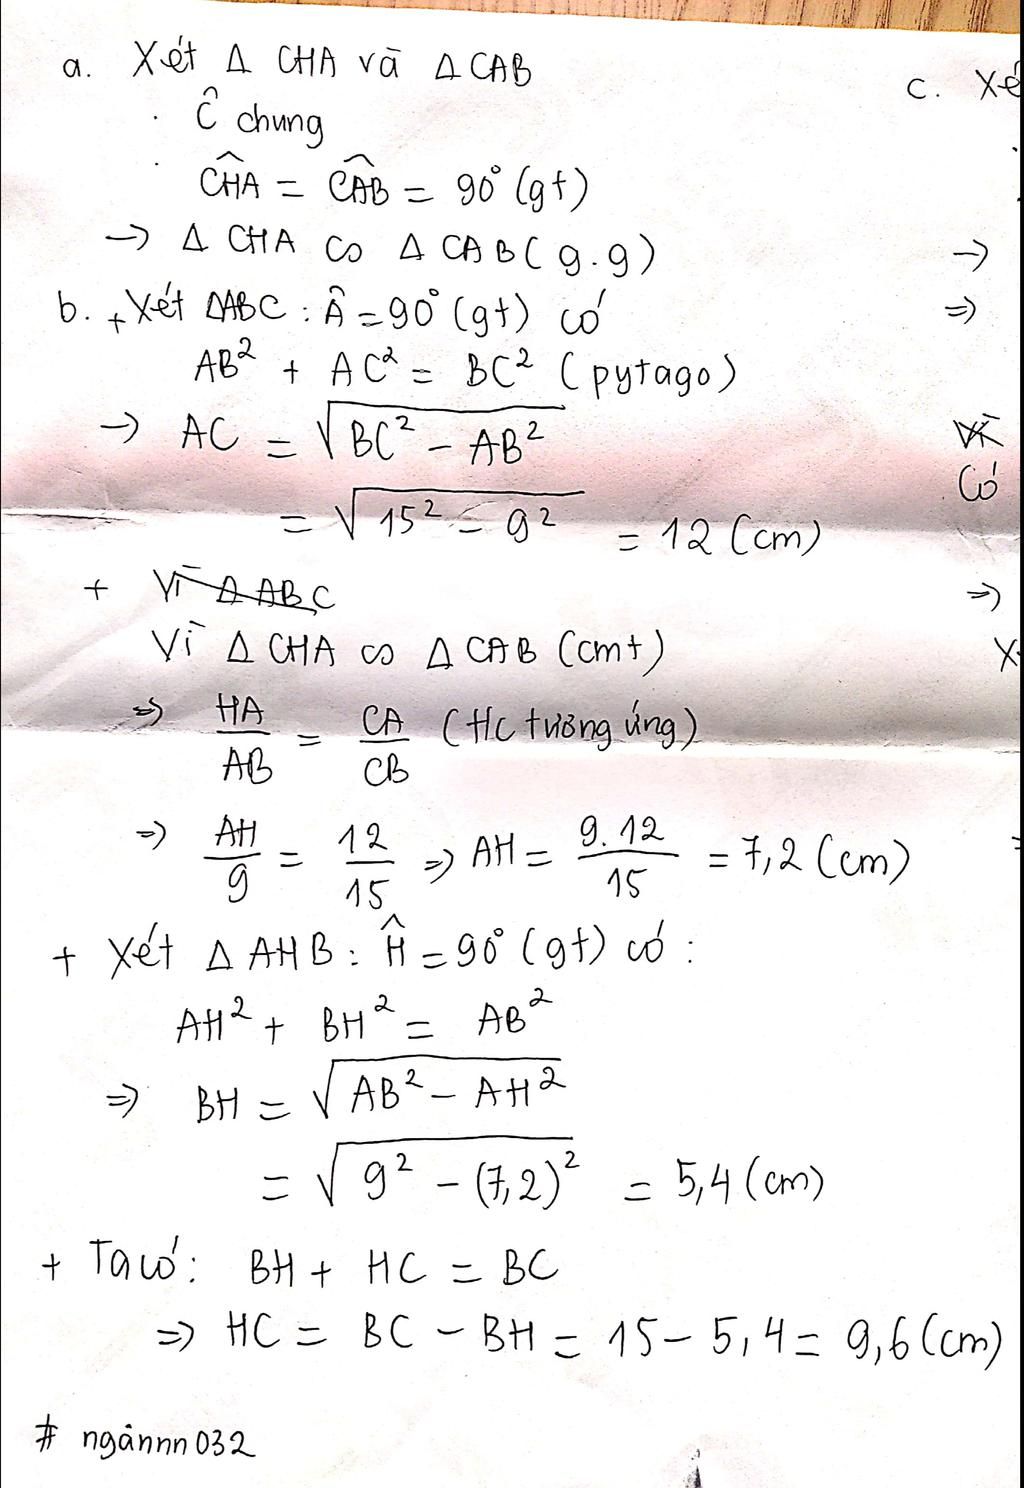 a. Xét Δ CHA và Δ CAB
Ĉ chung
CĤA = CÂB = 90° (gt)
→ Δ CHA ∽ Δ CAB (g.g)
b. + Xét ΔABC : Â = 90° (gt) có
AB² + AC² = BC² (pytago)
→ AC = √(BC² – AB²)
= √(15² – 9²) = 12 (cm)
+ Vì Δ ABC
Vì Δ CHA ∽ Δ CAB (cmt)
⇒ HA/AB = CA/CB (tlc tương ứng)
⇒ AH/9 = 12/15 ⇒ AH = 9.12/15 = 7,2 (cm)
+ Xét Δ AHB : Ĥ = 90° (gt) có :
AH² + BH² = AB²
⇒ BH = √(AB² – AH²)
= √(9² – (7,2)²) = 5,4 (cm)
+ Ta có : BH + HC = BC
⇒ HC = BC – BH = 15 – 5,4 = 9,6 (cm)
# ngânnn 032
c. Xé
→
⇒
Vì
Có
⇒
X